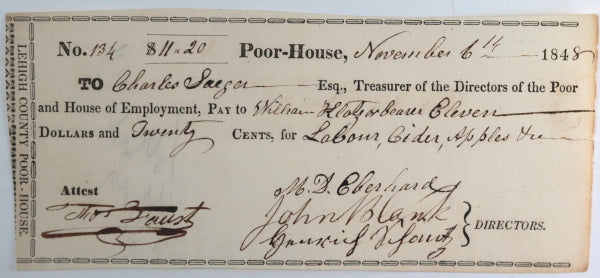 LEHIGH COUNTY POOR-HOUSE.
No. 134 $11.20 Poor-House, November 6th 1848
TO Charles Saeger Esq., Treasurer of the Directors of the Poor
and House of Employment, PAY to William Klotz or bearer Eleven
DOLLARS and Twenty CENTS, for Labour, Cider, Apples &c
Attest
M. D. Eberhard
Thos Faust
John Blank
DIRECTORS.
Henrich